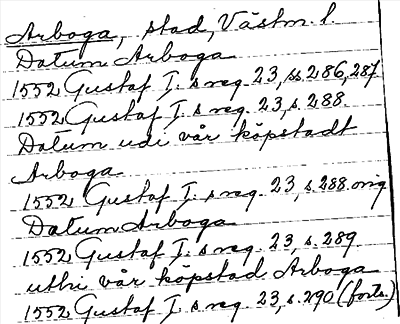 Arboga, stad, Västm. l
Datum Arboga
1552 Gustaf I:s reg. 23, ss. 286, 287
1552 Gustaf I:s reg. 23, s. 288
Datum udi vår köpstadt
Arboga
1552 Gustaf I:s reg. 23, s. 288 orig
Datum Arboga
1552 Gustaf I:s reg. 23, s. 289
uthi vår köpstad Arboga
1552 Gustaf I:s reg. 23, s. 290 (forts.)